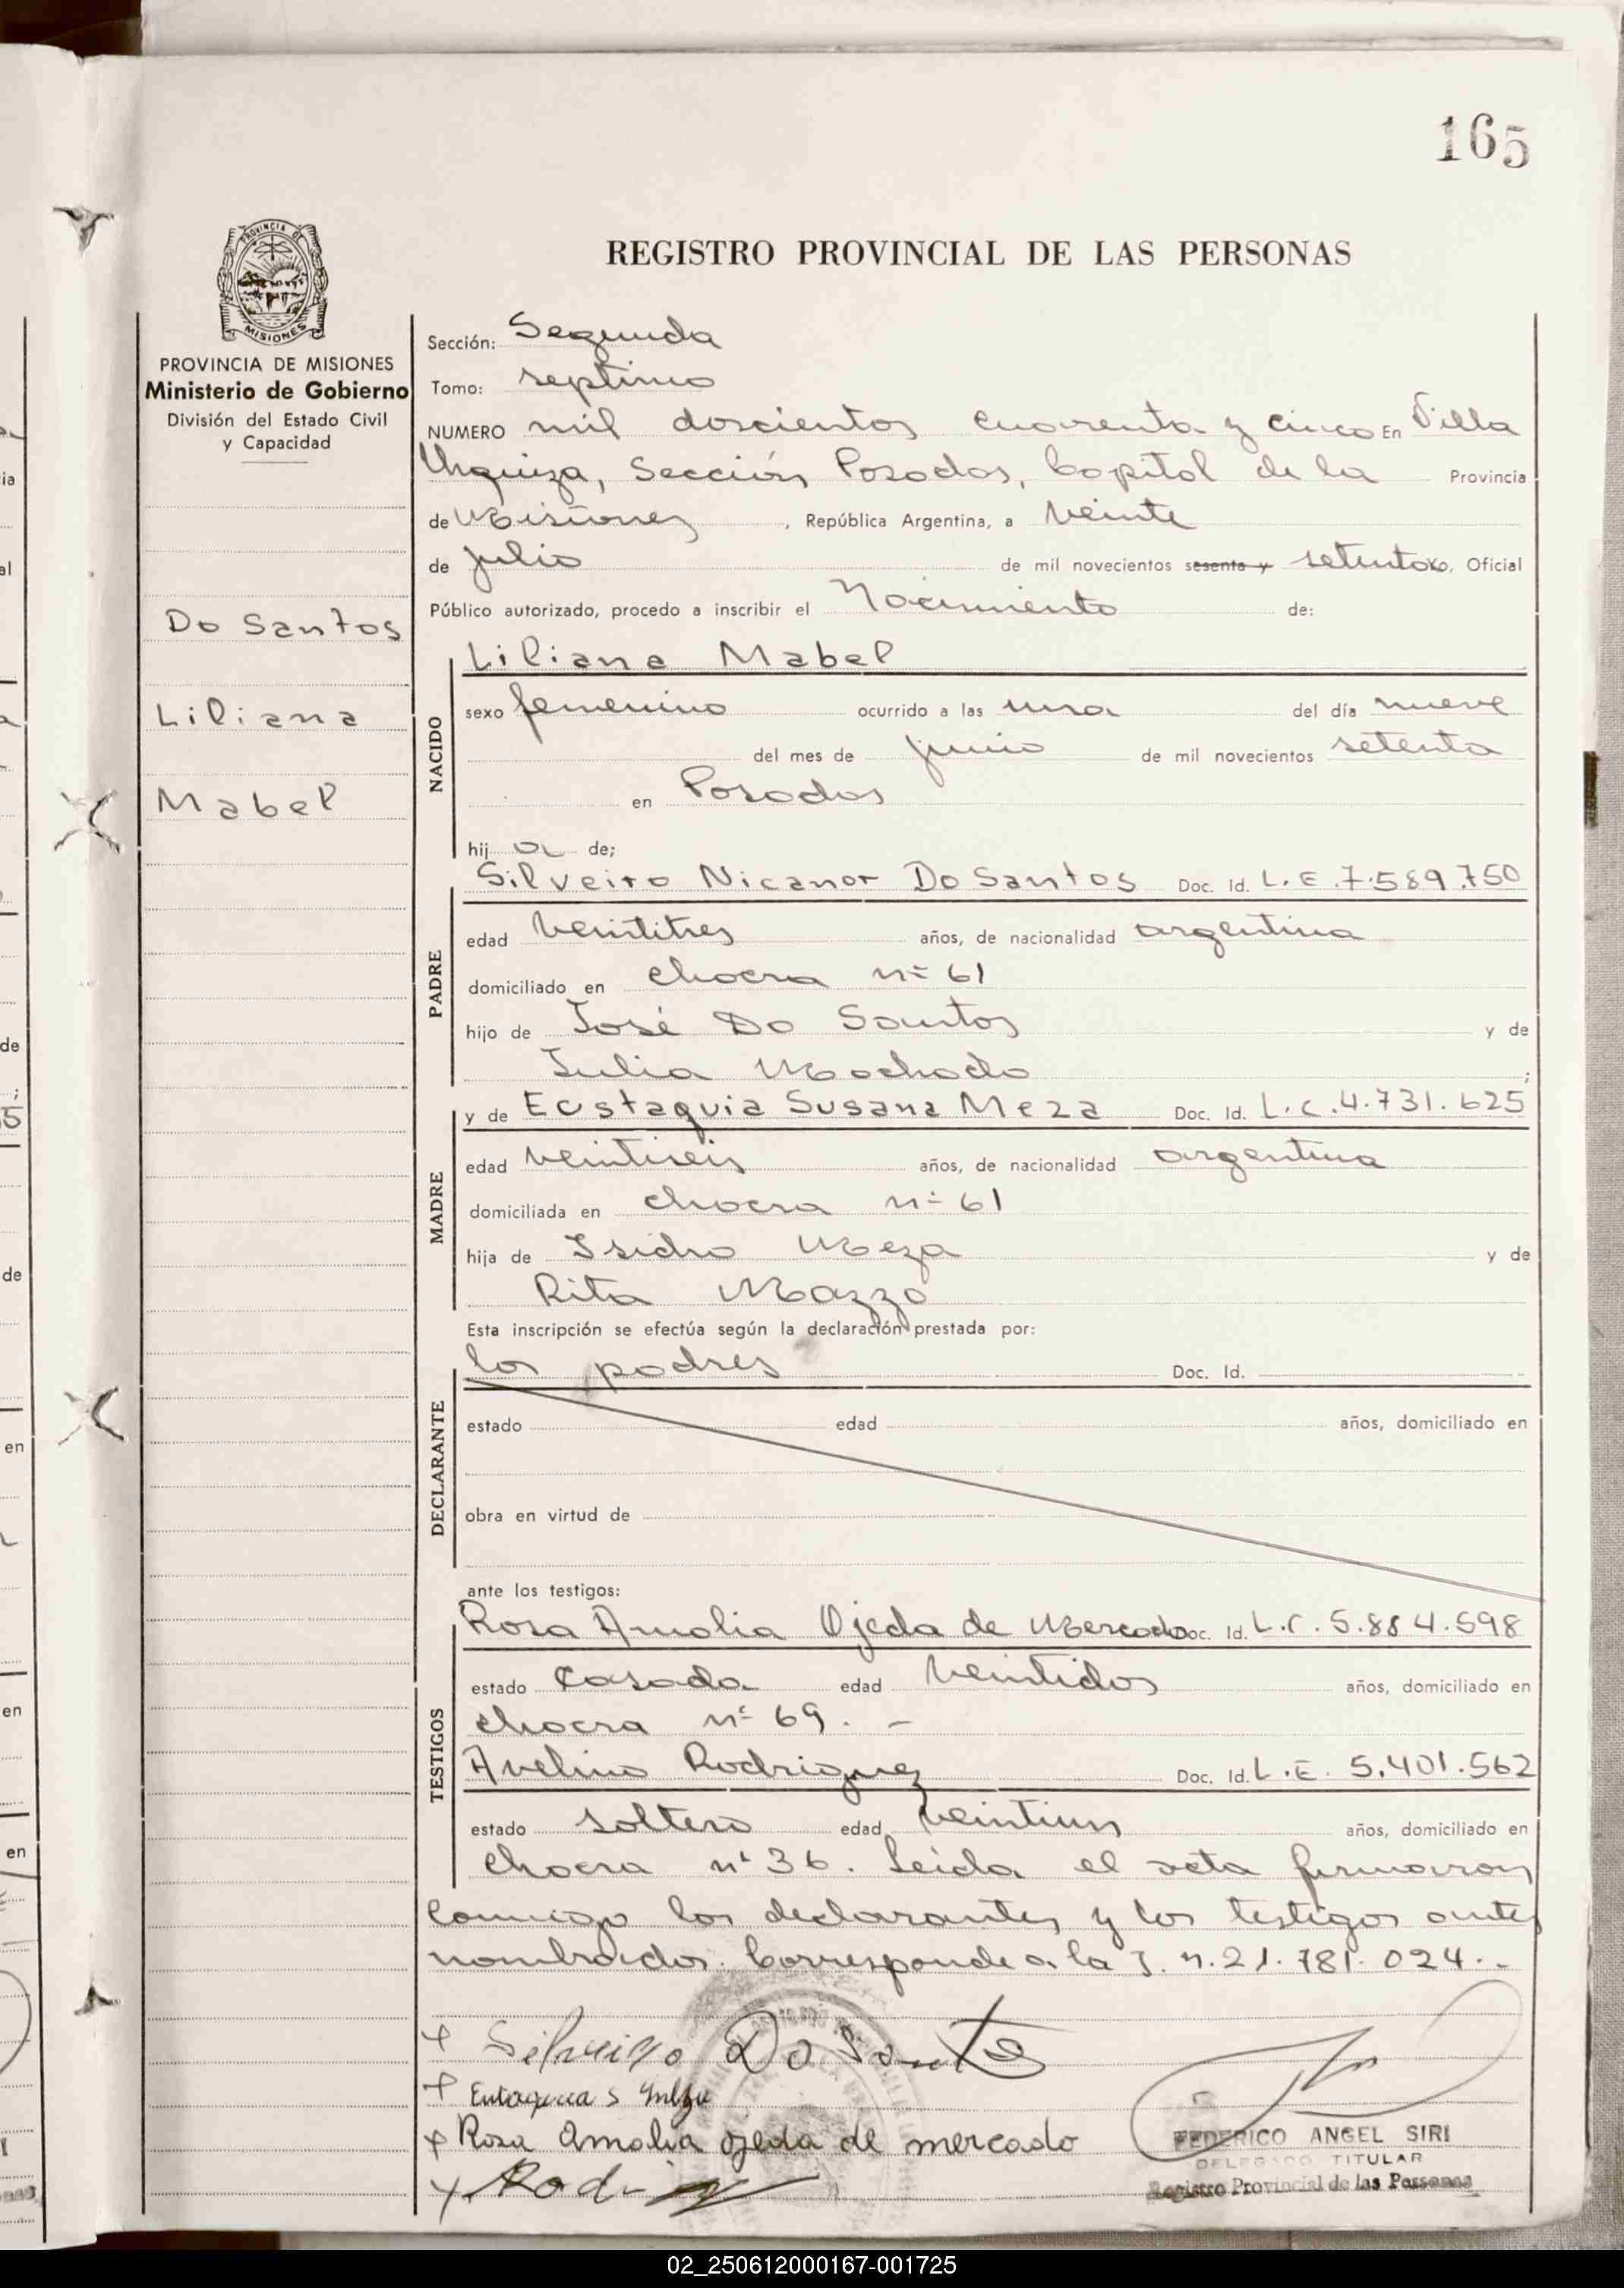 165
PROVINCIA DE
MISIONES
REGISTRO PROVINCIAL DE LAS PERSONAS
PROVINCIA DE MISIONES
Ministerio de Gobierno
División del Estado Civil
y Capacidad
Do Santos
Liliana
Mabel
Sección: Segunda
Tomo: septimo
NUMERO mil doscientos cuarenta y cinco En Villa
Urquiza, Sección Posadas, Capital de la Provincia
de Misiones, República Argentina, a veinte
de julio de mil novecientos sesenta y setenta yo, Oficial
Público autorizado, procedo a inscribir el Nacimiento de:
Liliana Mabel
NACIDO
sexo femenino ocurrido a las una del día nueve
del mes de junio de mil novecientos setenta
en Posadas
hij a de;
Silveiro Nicanor Do Santos Doc. Id. L.E. 7.589.750
PADRE
edad veintitres años, de nacionalidad argentina
domiciliado en chacra nº 61
hijo de José Do Santos y de
Julia Machado ;
y de Eustaquia Susana Meza Doc. Id. L.C. 4.731.625
MADRE
edad veintiseis años, de nacionalidad argentina
domiciliada en chacra nº 61
hija de Isidro Meza y de
Rita Mazzo
Esta inscripción se efectúa según la declaración prestada por:
los padres Doc. Id.
DECLARANTE
estado edad años, domiciliado en
obra en virtud de
ante los testigos:
Rosa Amalia Ojeda de Mercado Doc. Id. L.C. 5.884.598
TESTIGOS
estado casada edad veintidos años, domiciliado en
chacra nº 69. -
Avelino Rodriguez Doc. Id. L.E. 5.401.562
estado soltero edad veintiun años, domiciliado en
chacra nº 36. Leida el acta firmaron
conmigo los declarantes y los testigos antes
nombrados. Corresponde a la I. n. 21.781.024.-
Do Santos
Rosa Amalia ojeda de mercado
FEDERICO ANGEL SIRI
DELEGADO TITULAR
Registro Provincial de las Personas
02_250612000167-001725